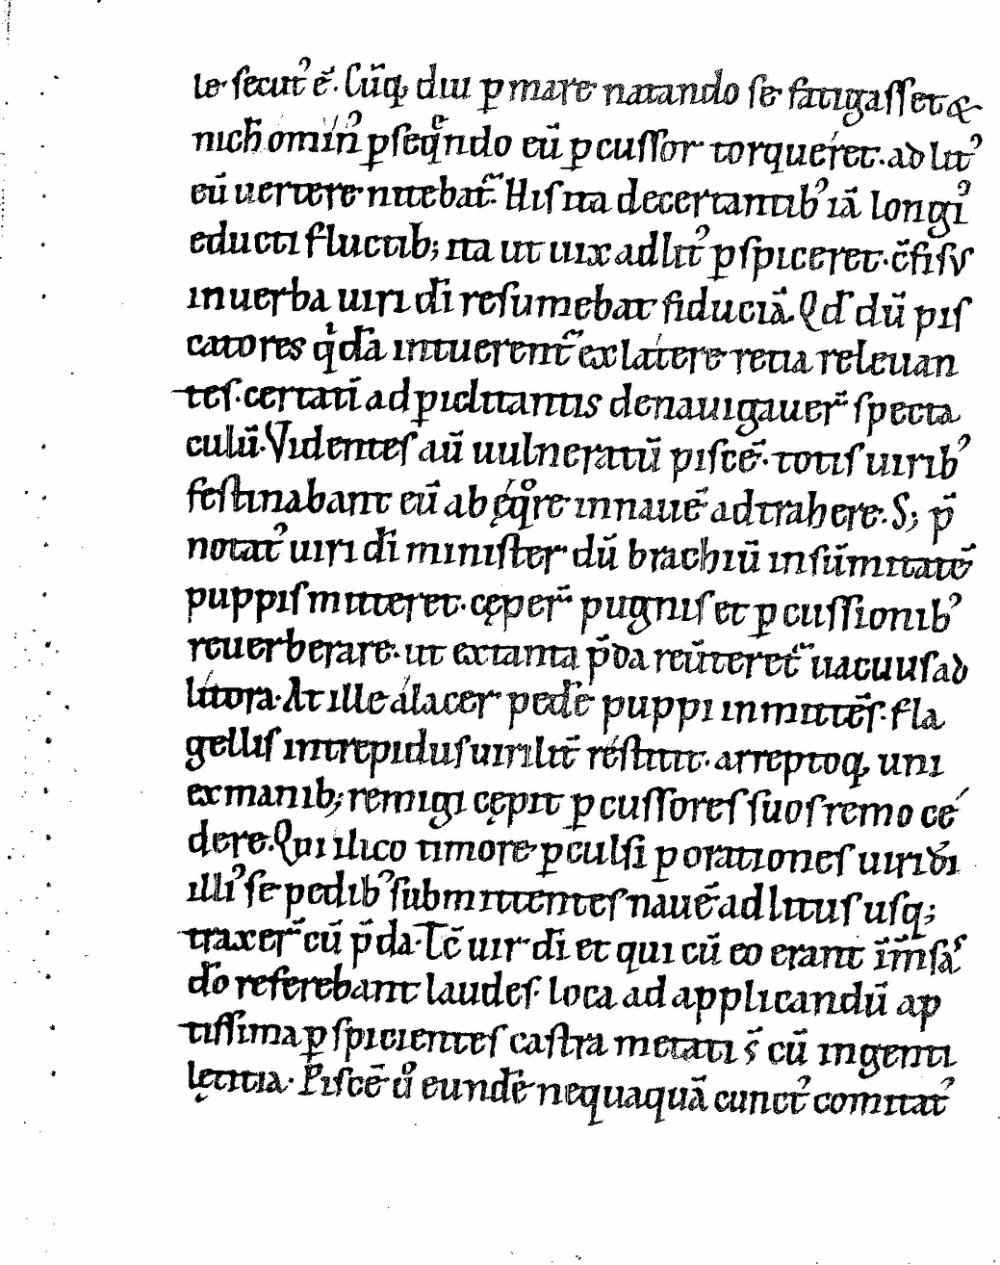 le secut᷒ ē. Cūq; diu ꝑ mare natando se fatigasset &
nich̄ omin᷒ ꝑseq̄ndo eū ꝑcussor torqueret. ad lit᷒
eū uertere nitebat᷒. His ita decertantib᷒ iā longi᷒
educti fluctib; ita ut uix ad lit᷒ ꝑspiceret. c̄fisus
in uerba uiri dī resumebat fiduciā. Qd̄ dū pis
catores q̇dā intuerent᷒ ex latere retia releuan
tes. certatī ad ꝑiclitantis denauigauer̄ specta
culū. Videntes aū uulneratū piscē. totis uirib᷒
festinabant eū ab ęq̊re in nauē adtrahere. S; p̄
notat᷒ uiri dī minister dū brachiū in sūmitatē
puppis mitteret. cęper̄ pugnis et ꝑcussionib᷒
reuerberare. ut extanta p̄da reūteret᷒ uacuus ad
litora. At ille alacer pedē puppi inmittēs. fla
gellis intrepidus uirilit̄ restitit. arreptoq; uni
ex manib; remigi cępit ꝑcussores suos remo cę
dere. Qui ilico timore ꝑculsi ꝑ orationes uiri dī
illi᷒ se pedib᷒ submittentes nauē ad litus usq;
traxer̄ cū p̄da. Tc̄ uir dī et qui cū eo erant īm̄sā
do referebant laudes. loca ad applicandū ap
tissima ꝑspicientes castra metati s̄ cū ingenti
lętitia. Piscē ů eundē nequaquā cunct᷒ comitat᷒